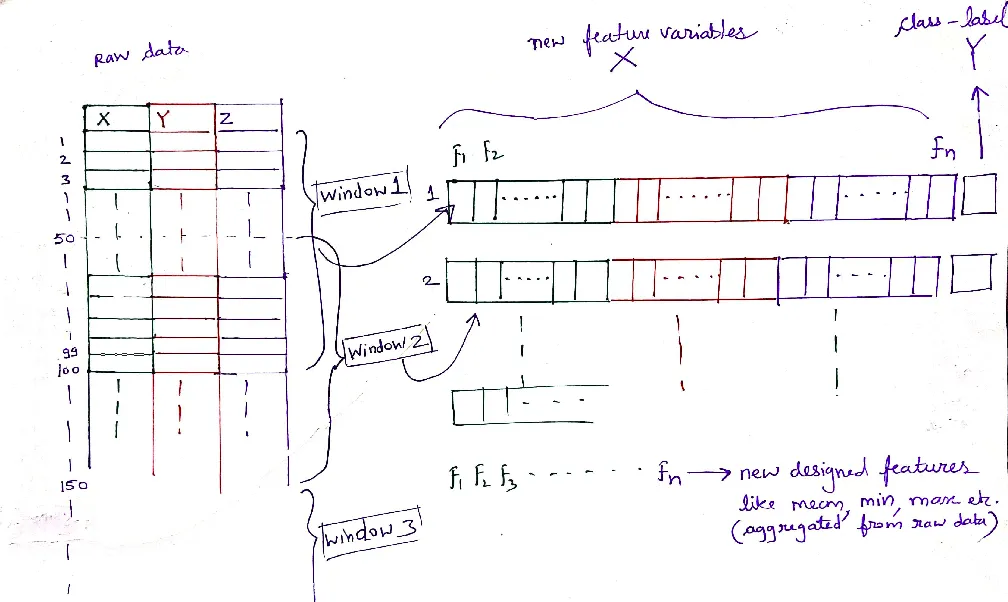 Raw data
new feature variables
X
class-label
Y
X Y Z
1
2
3
50
99
100
150
Window 1
Window 2
Window 3
f1 f2 fn
1
2
f1 f2 f3 - - - - - - fn → new designed features
like mean, min, max etc.
(aggregated from raw data)